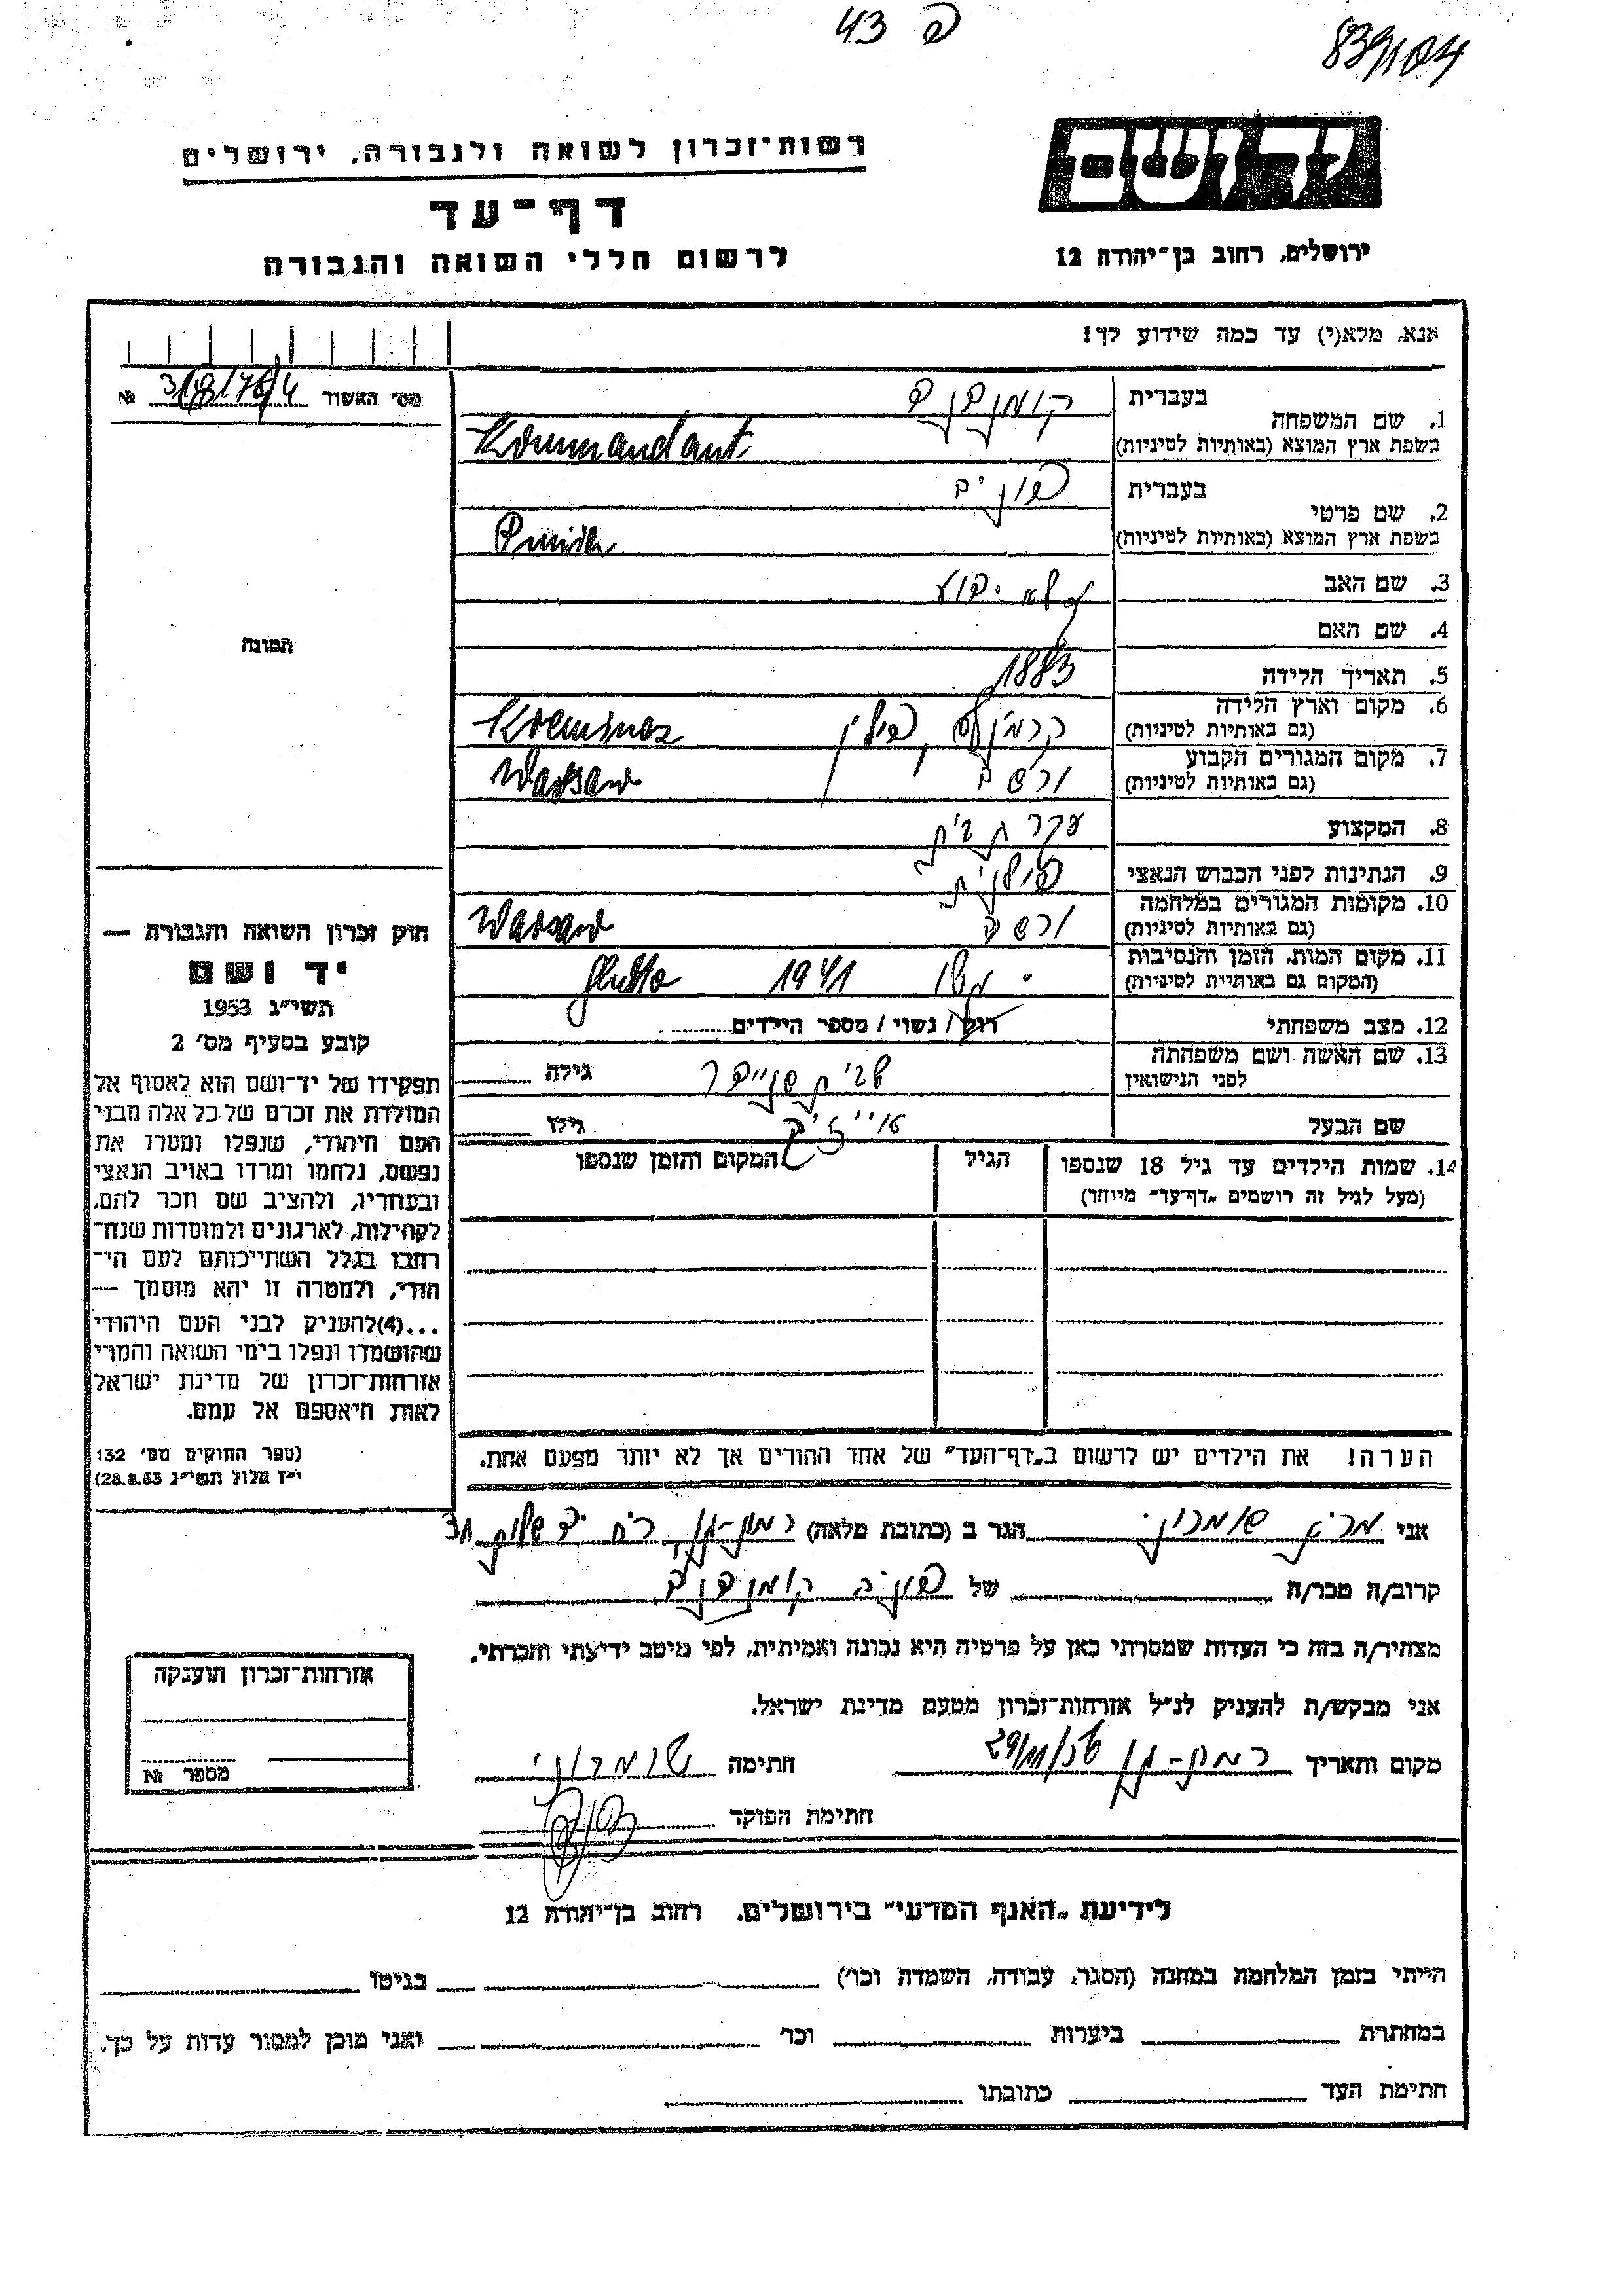 פ 43
839/104
יד ושם
ירושלים, רחוב בן־יהודה 12
רשות־זכרון לשואה ולגבורה, ירושלים
דף־עד
לרשום חללי השואה והגבורה
אנא, מלא(י) עד כמה שידוע לך!
מס' האשור №
1. שם המשפחה בעברית קומנדנט
בשפת ארץ המוצא (באותיות לטיניות) Kommandant
2. שם פרטי בעברית
בשפת ארץ המוצא (באותיות לטיניות)
3. שם האב לא ידוע
4. שם האם
5. תאריך הלידה 1883
6. מקום וארץ הלידה פולין
(גם באותיות לטיניות)
7. מקום המגורים הקבוע ורשה
(גם באותיות לטיניות) Warsaw
8. המקצוע עקרת בית
9. הנתינות לפני הכבוש הנאצי פולנית
10. מקומות המגורים במלחמה ורשה
(גם באותיות לטיניות) Warsaw
11. מקום המות, הזמן והנסיבות 1941 Ghetto
(המקום גם באותיות לטיניות)
12. מצב משפחתי רווק / נשוי / מספר הילדים
13. שם האשה ושם משפחתה גילה
לפני הנישואין
שם הבעל אייזיק גילו
14. שמות הילדים עד גיל 18 שנספו הגיל המקום והזמן שנספו
(מעל לגיל זה רושמים „דף־עד" מיוחד)
הערה! את הילדים יש לרשום ב„דף־העד" של אחד ההורים אך לא יותר מפעם אחת.
תמונה
חוק זכרון השואה והגבורה —
יד ושם
תשי״ג 1953
קובע בסעיף מס' 2
תפקידו של יד־ושם הוא לאסוף אל
המולדת את זכרם של כל אלה מבני
העם היהודי, שנפלו ומסרו את
נפשם, נלחמו ומרדו באויב הנאצי
ובעוזריו, ולהציב שם וזכר להם,
לקהילות, לארגונים ולמוסדות שנח־
רבו בגלל השתייכותם לעם הי־
הודי, ולמטרה זו יהא מוסמך —
...(4)להעניק לבני העם היהודי
שהושמדו ונפלו בימי השואה והמרי
אזרחות־זכרון של מדינת ישראל
לאות היאספם אל עמם.
(ספר החוקים מס' 132
י״ז אלול תשי״ג 28.8.53)
אני שומרוני הגר ב (כתובת מלאה) רמת-גן, רח'
קרוב/ה מכר/ה של קומנדנט
מצהיר/ה בזה כי העדות שמסרתי כאן על פרטיה היא נכונה ואמיתית, לפי מיטב ידיעתי והכרתי.
אני מבקש/ת להעניק לנ״ל אזרחות־זכרון מטעם מדינת ישראל.
מקום ותאריך רמת-גן 29/11/56 חתימה שומרוני
חתימת הפוקד
אזרחות־זכרון הוענקה
מספר №
לידיעת „האגף המדעי" בירושלים, רחוב בן־יהודה 12
הייתי בזמן המלחמה במחנה (הסגר, עבודה, השמדה וכו') בגיטו
במחתרת ביערות וכו' ואני מוכן למסור עדות על כך.
חתימת העד כתובתו